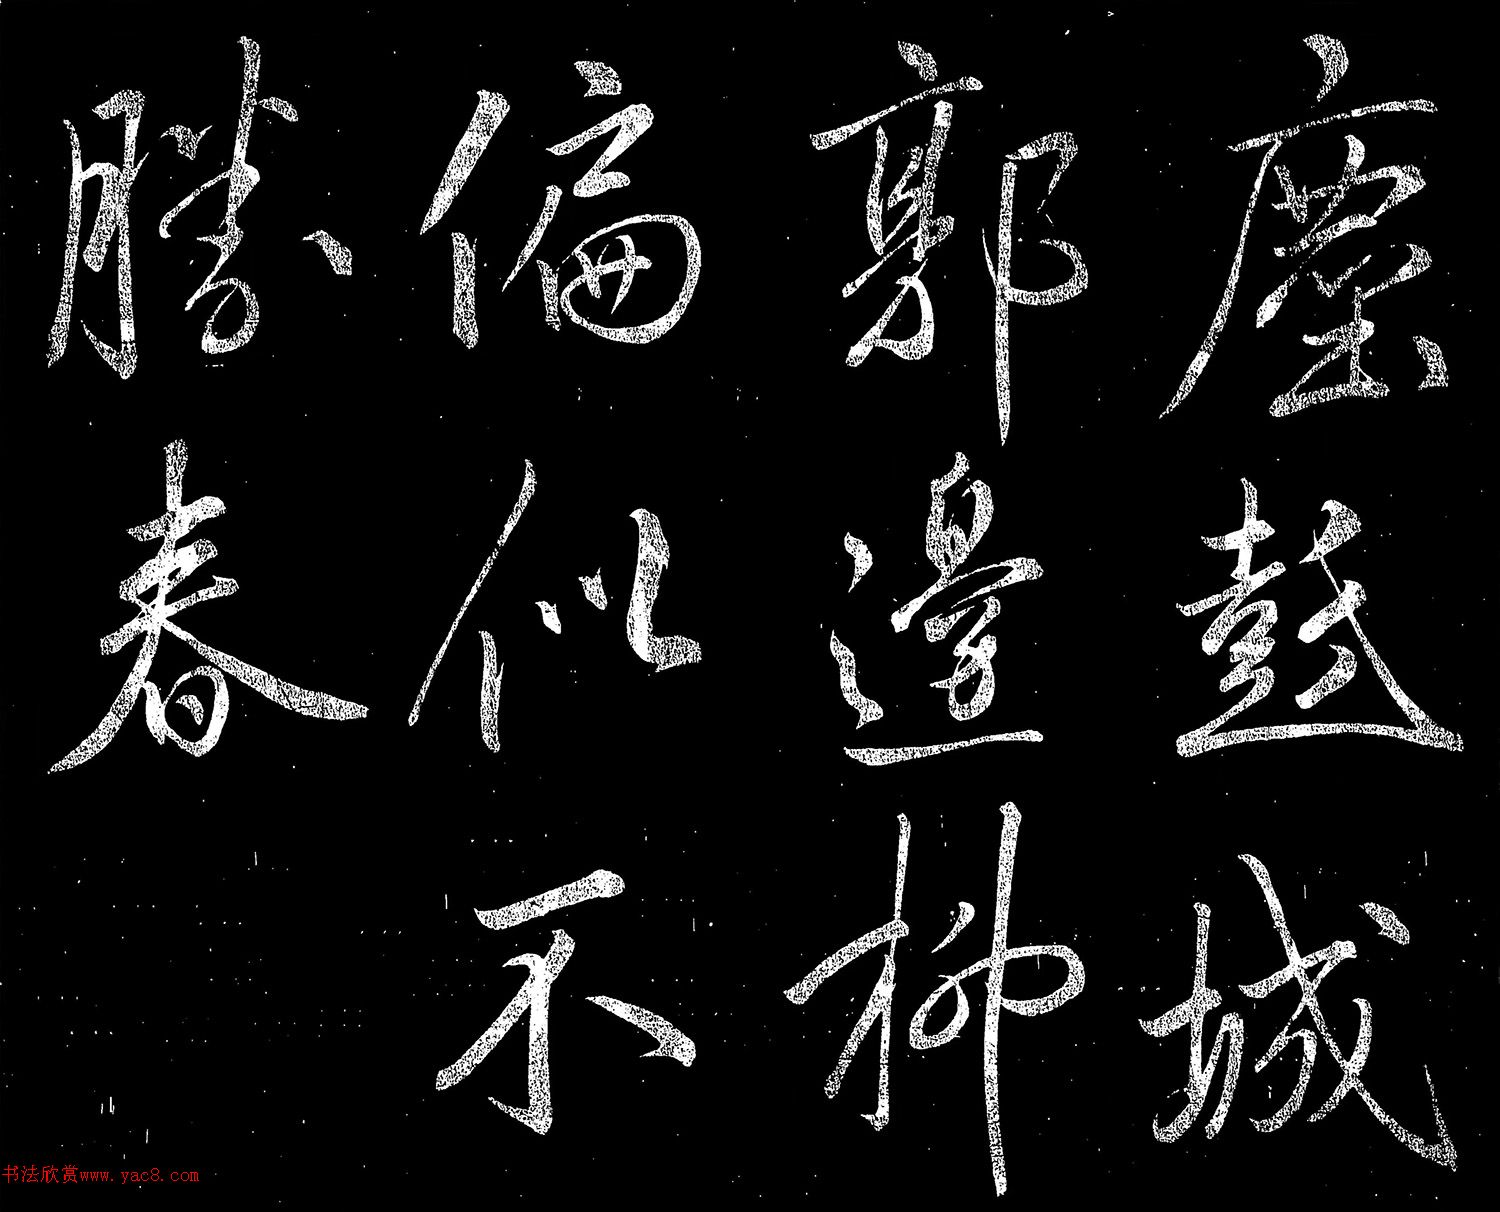 塵鼓城
郭邊柳
偏似不
勝春
书法欣赏www.yac8.com